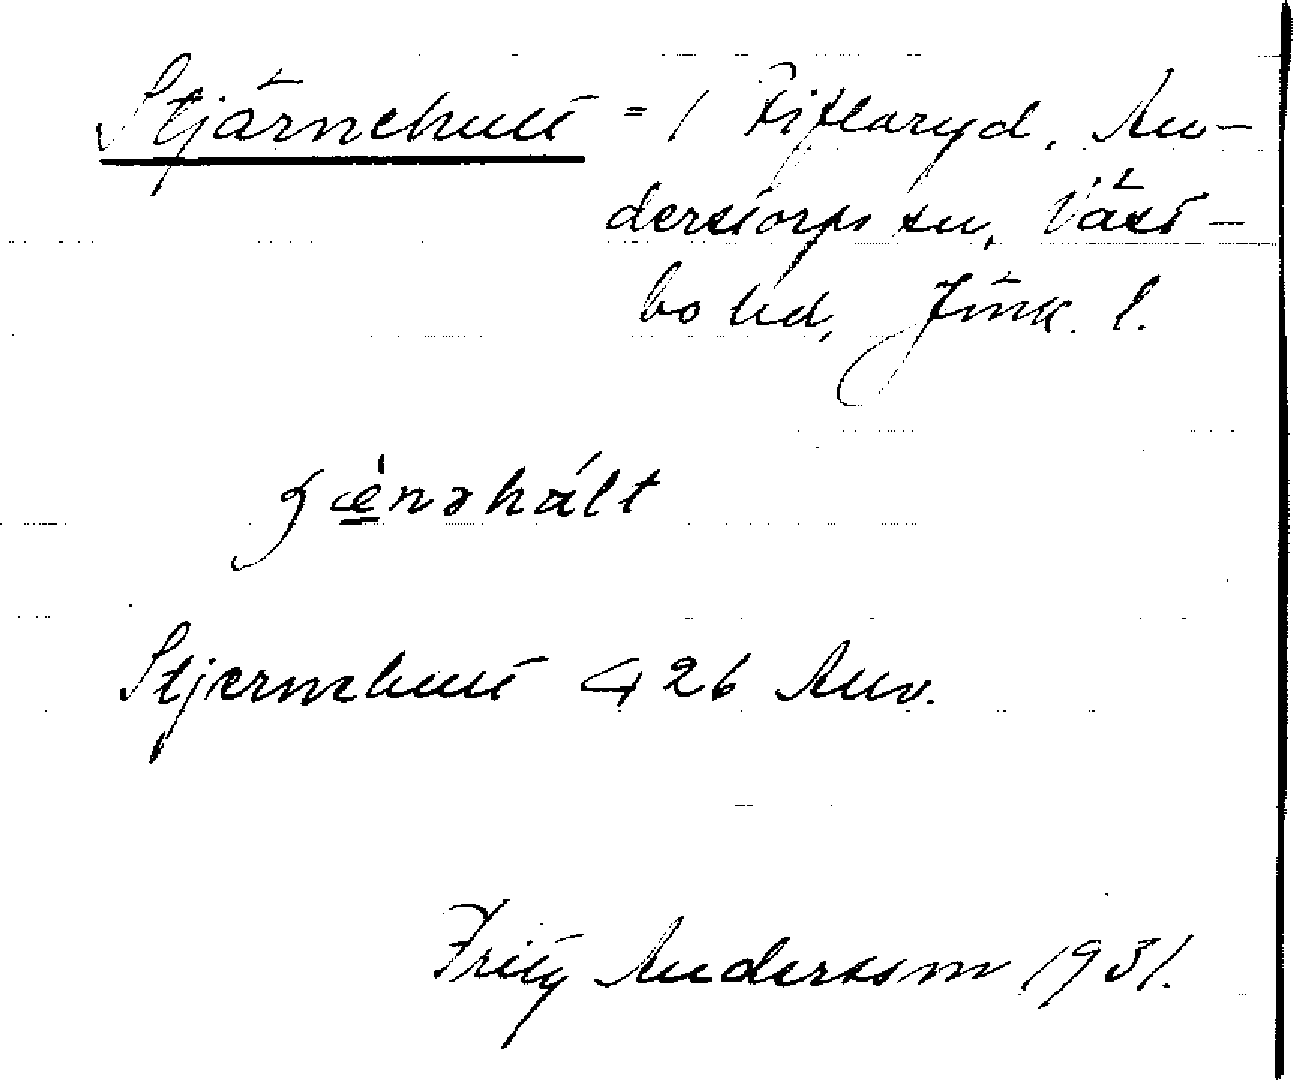 Stjärnehult = / Fiflaryd, An-
derstorps sn, Väst-
bo hd, Jönk. l.
ʃæ̀nəhált
Stjernehult 26 Anv.
Fritz Andersson 1931.